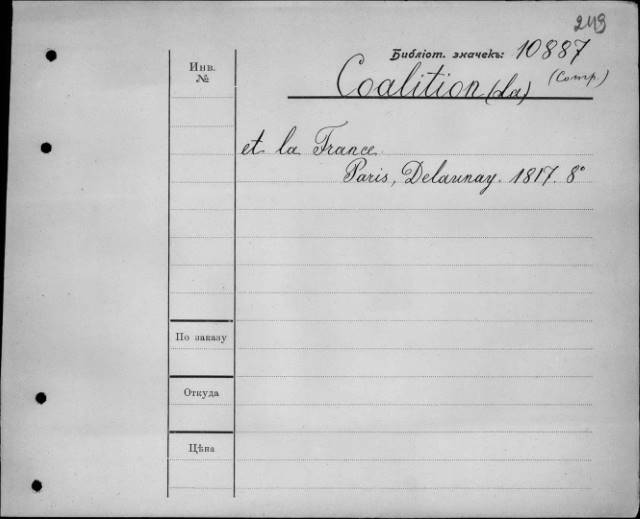 249
Библіот. значекъ: 10887
Инв.
№
Coalition (La) (Comp.)
et la France
Paris, Delaunay. 1817. 8°
По заказу
Откуда
Цѣна